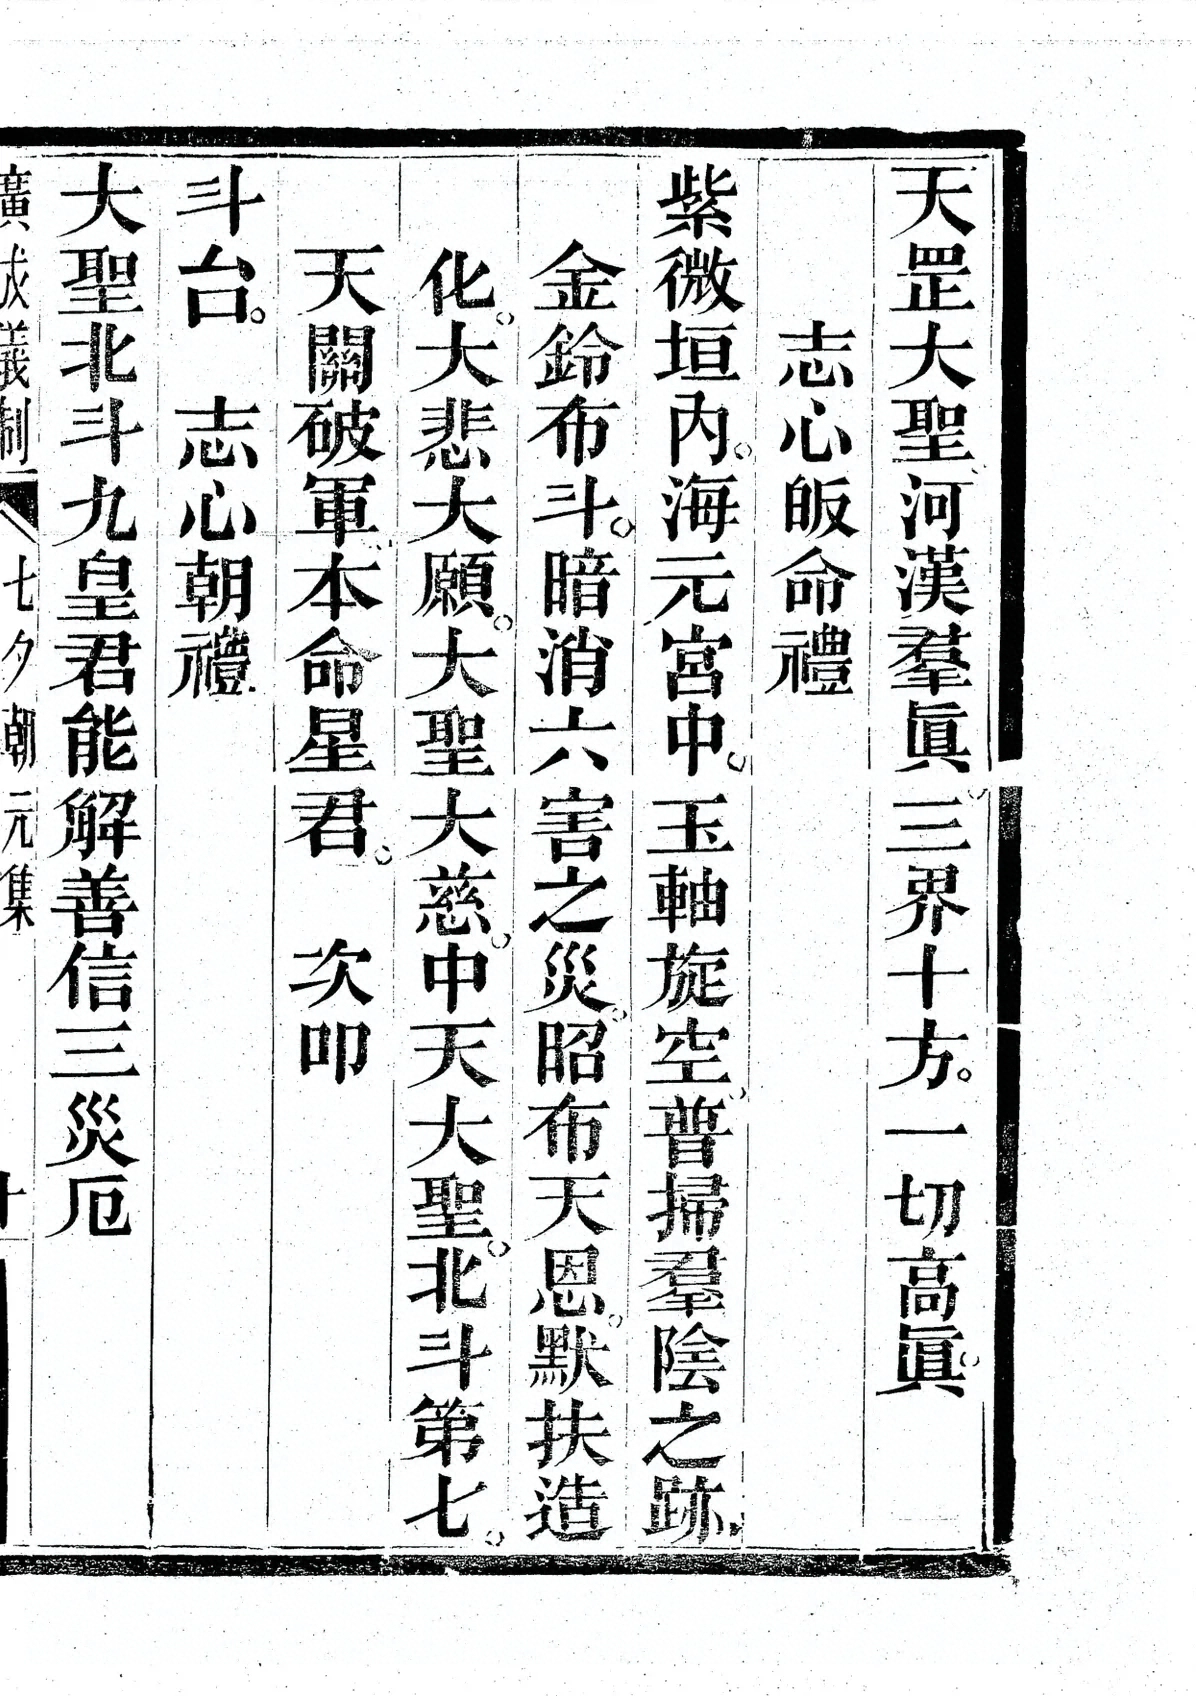 天罡大聖河漢羣眞三界十方。一切高眞。
志心皈命禮
紫微垣內。海元宮中。玉軸旋空。普掃羣陰之跡。
金鈴布斗。暗消六害之災。昭布天恩。默扶造
化。大悲大願。大聖大慈。中天大聖。北斗第七。
天關破軍本命星君。　次叩
斗台。　志心朝禮
大聖北斗九皇君能解善信三災厄
廣成儀制　七夕朝元集　十